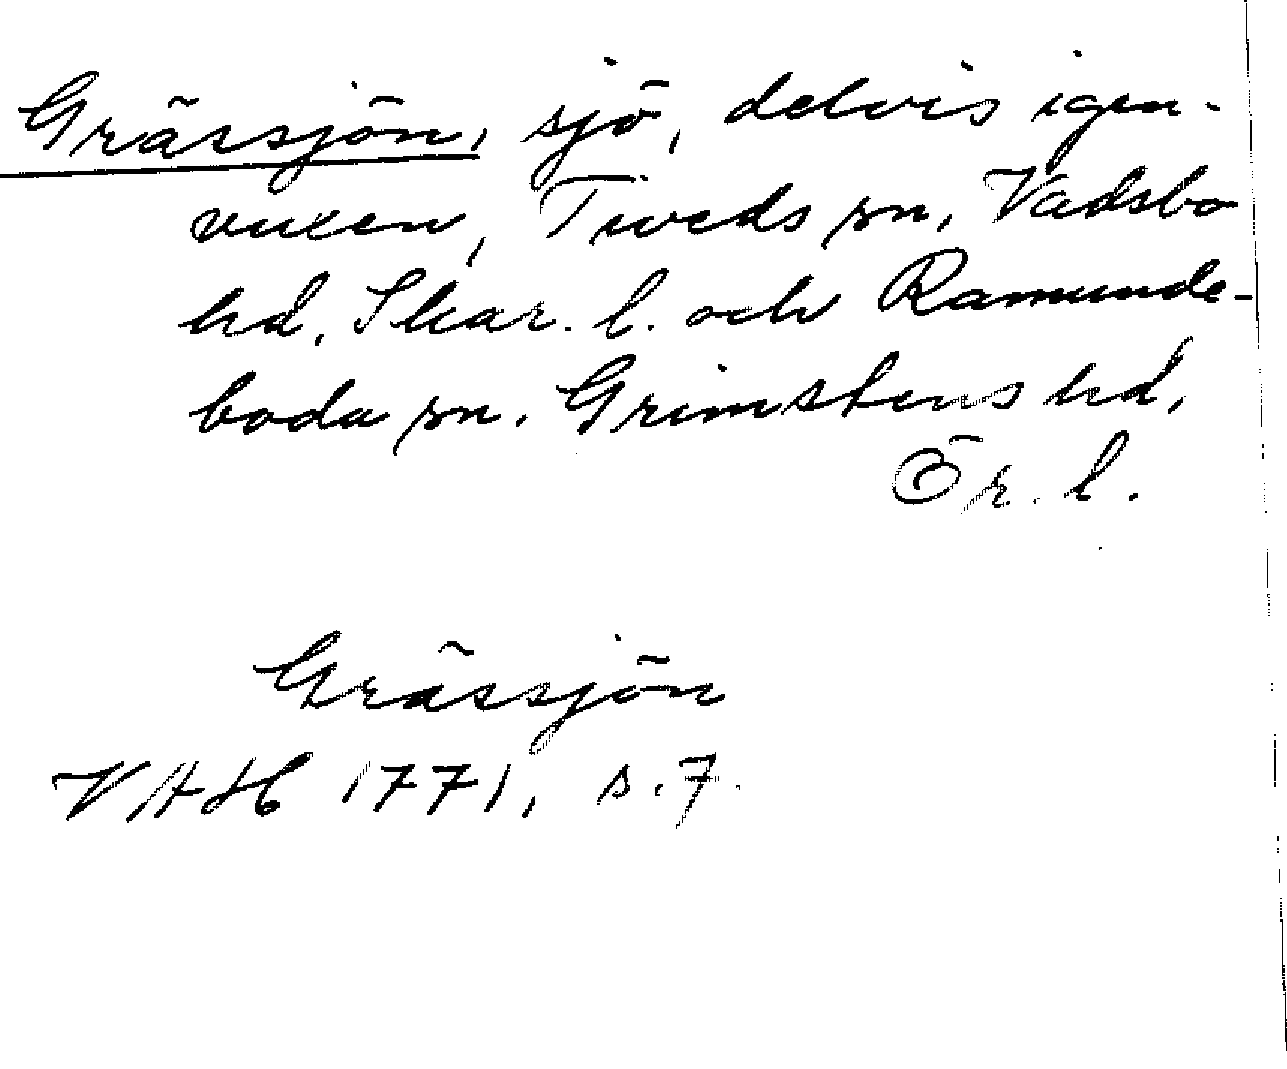 Grässjön, sjö, delvis igen-
vuxen, Tiveds sn, Vadsbo
hd, Skar. l. och Ramunde-
boda sn. Grimstens hd,
Ör. l.
Grässjön
VAH 1771, s. 7.